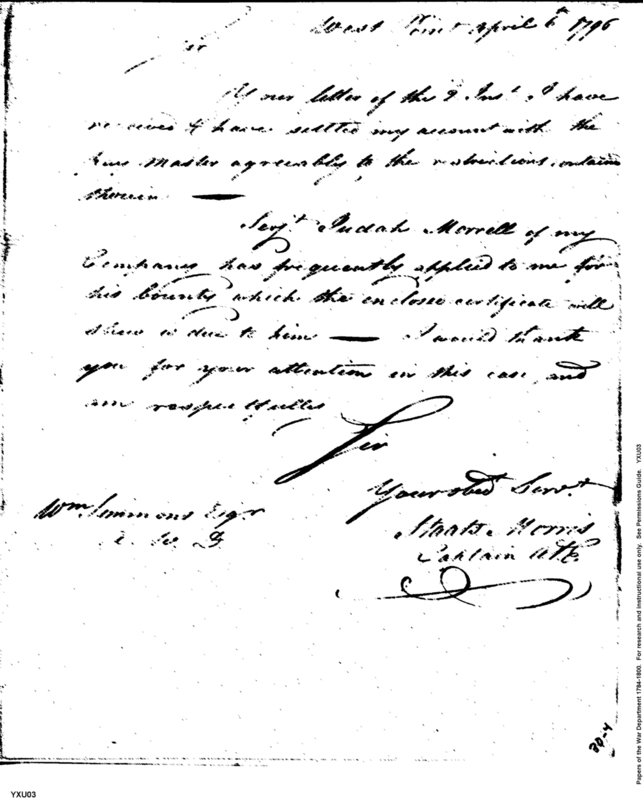 West Point April 6th 1796
Sir
Your letter of the 2 Inst. I have
received & have settled my account with the
Pay Master agreeably to the restrictions contain
therein —
Serjt. Judah Morrell of my
Company has frequently applied to me for
his bounty which the enclosed certificate will
shew is due to him — I would thank
you for your attention in this case and
am respectfully
Sir
Your obed Servt.
Staats Morris
Captain Art.
Wm Simmons Esqr
A. W. D.
20-4
YXU03
Papers of the War Department 1784-1800. For research and instructional use only. See Permissions Guide. YXU03